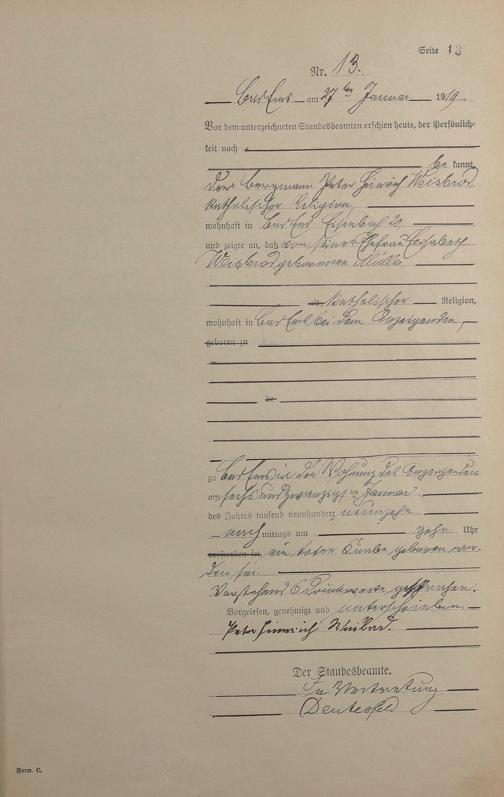 Seite 13
Nr. 13.
Bad Ems am 27ten Januar 1919.
Vor dem unterzeichneten Standesbeamten erschien heute, der Persönlich-
keit nach
be kannt,
der Bergmann Peter Heinrich Weisbrod
katholischer Religion,
wohnhaft in Bad Ems Eisenbach 20
und zeigte an, daß von seiner Ehefrau Elisabeth
Weisbrod geborenen Müller
alt, katholischer Religion,
wohnhaft in Bad Ems bei dem Anzeigenden,
geboren zu
zu Bad Ems in der Wohnung des Anzeigenden
am sechsundzwanzigsten Januar
des Jahres tausend neunhundert neunzehn
nach mittags um zehn Uhr
verstorben sei, ein toter Knabe geboren wor-
den sei
Vorstehend 6 Druckworte gestrichen.
Vorgelesen, genehmigt und unterschrieben
Peter Heinrich Weisbrod.
Der Standesbeamte.
In Vertretung
Form. C.